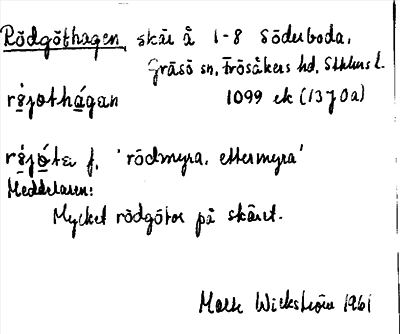 Rödgöthagen, skär å 1-8 Söderboda,
Gräsö sn, Frösåkers hd, Sthlms l.
1099 ek (13 J 0a)
f. 'rödmyra, ettermyra'
Meddelaren:
Mycket rödgötor på skäret.
Wickström 1961